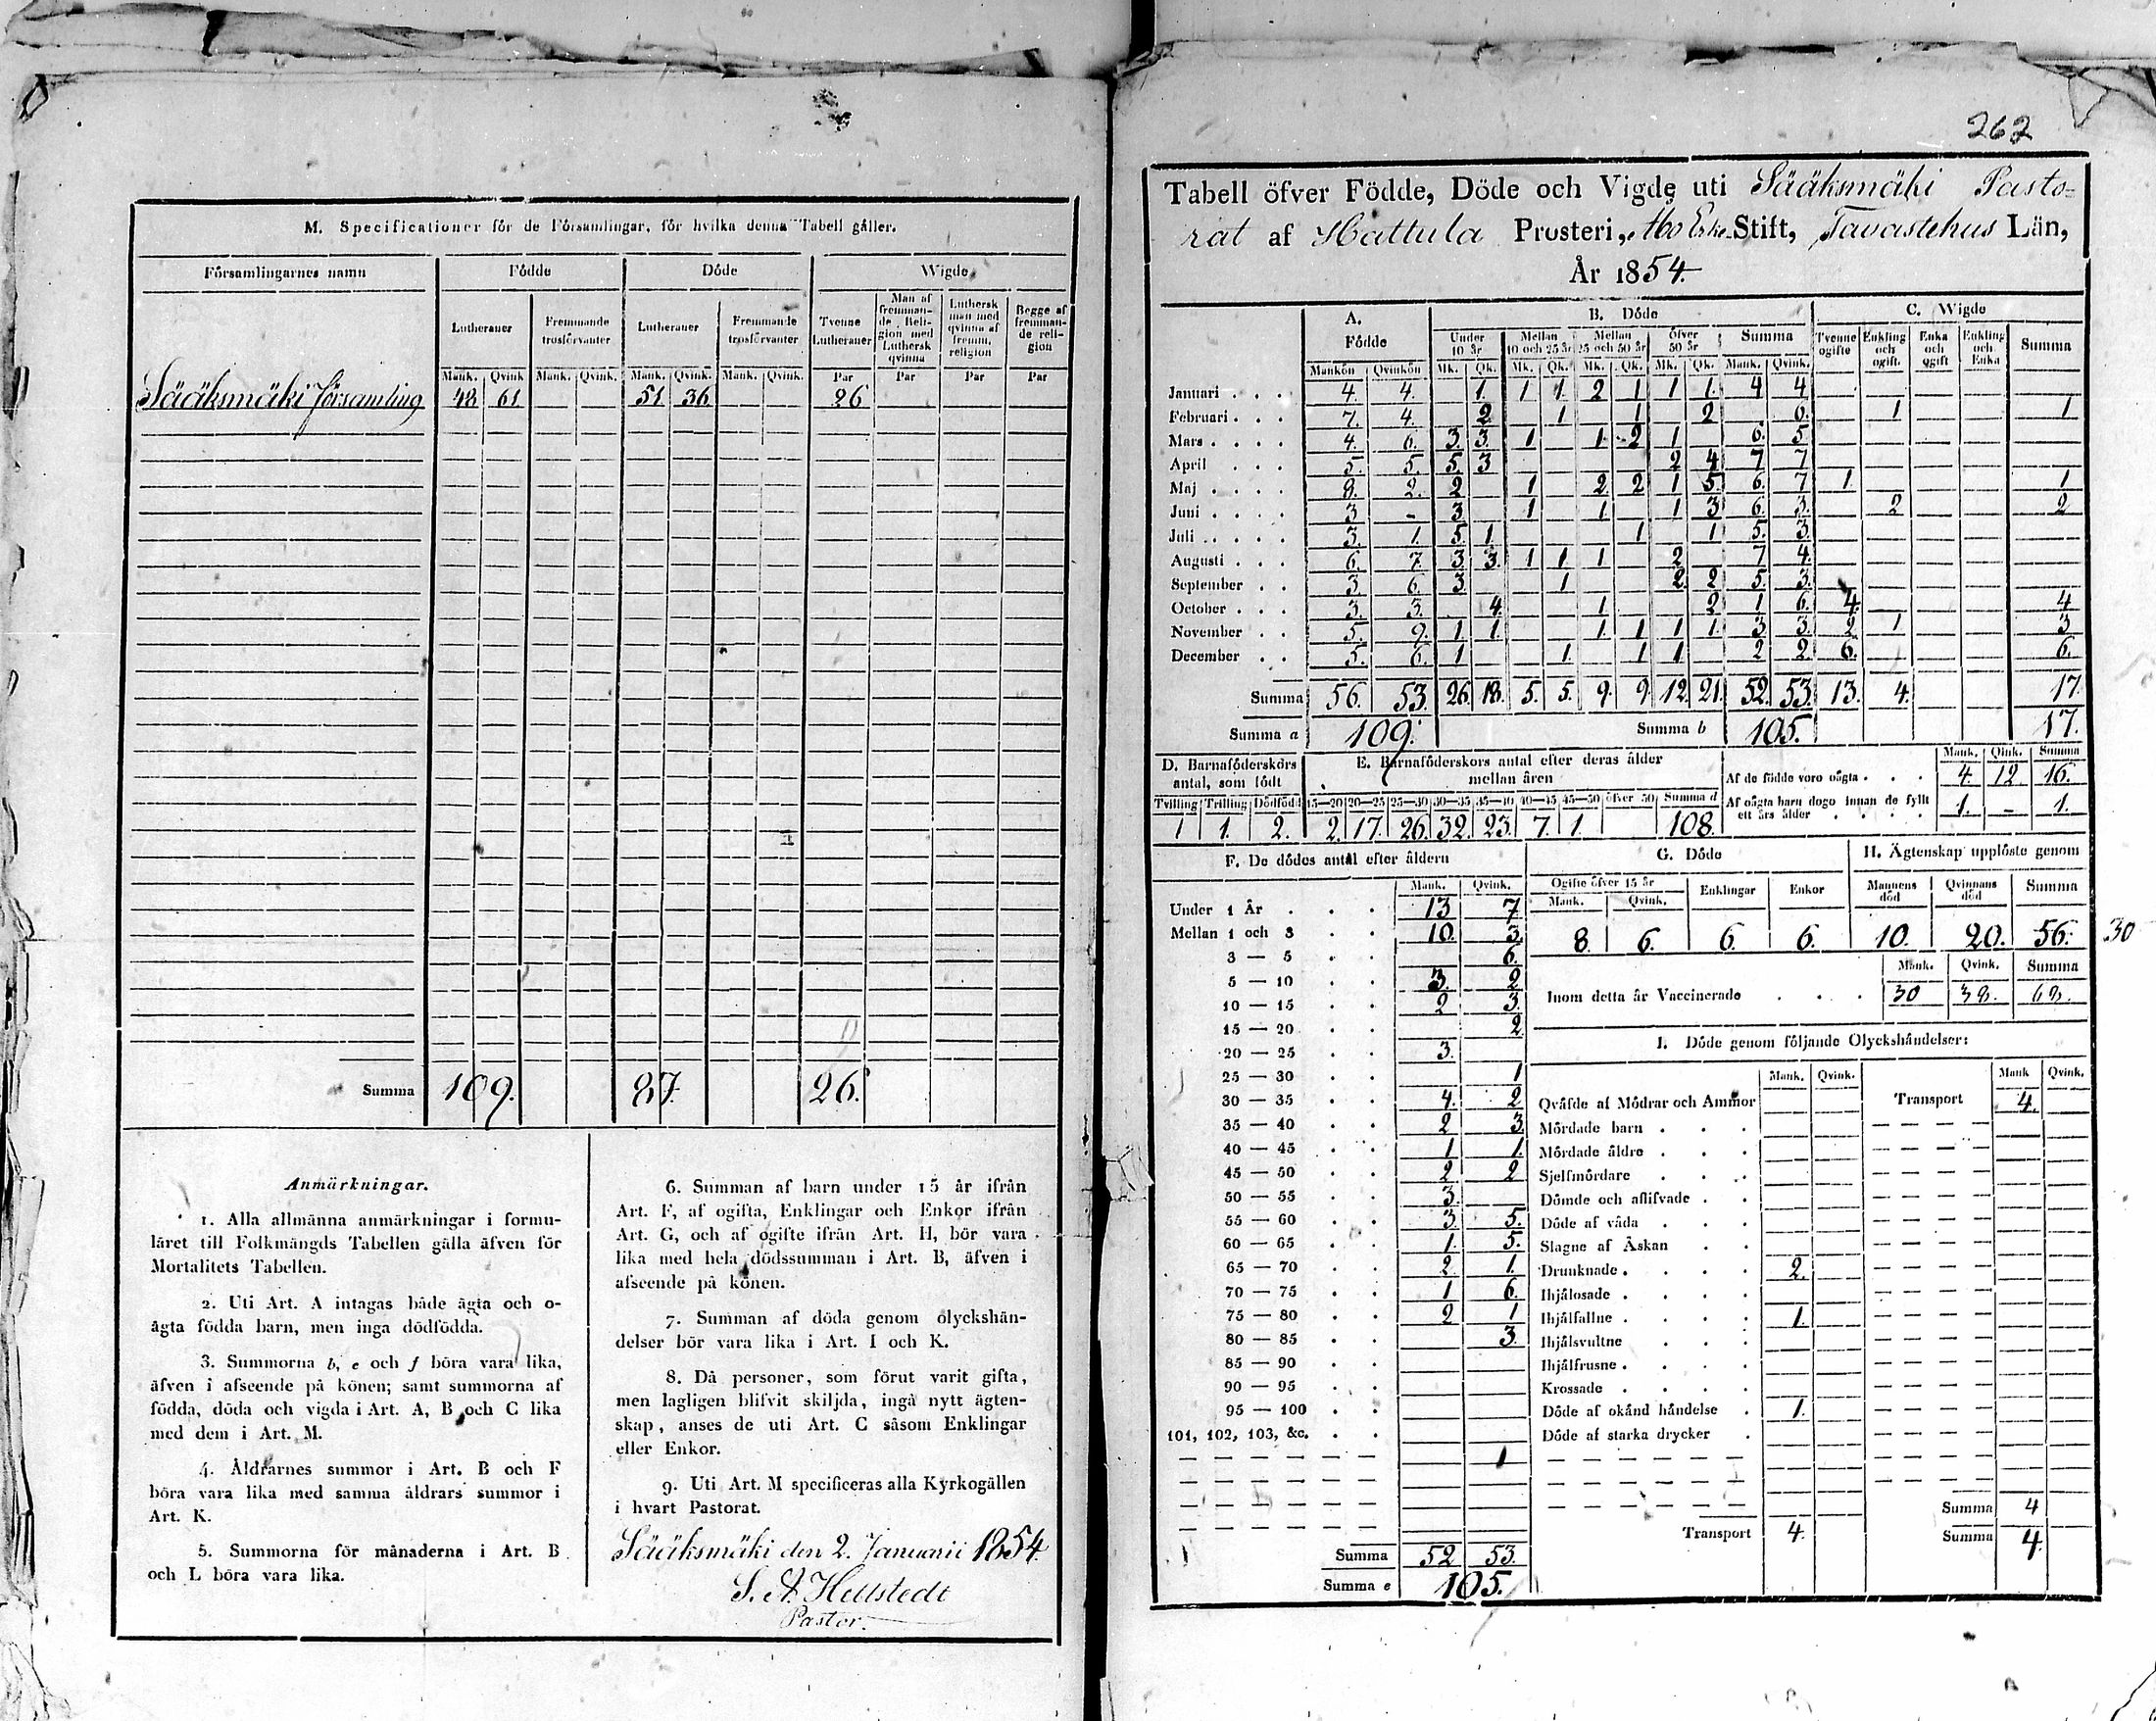 M. Specificationer för de Församlingar, för hvilka denna Tabell gäller.
Församlingarnes namn | Födde | Döde | Wigde
Lutheraner | Fremmande trosförvanter | Lutheraner | Fremmande trosförvanter | Tvenne Lutheraner | Man af fremmande Religion med Luthersk qvinna | Luthersk man med qvinna af fremm. religion | Begge af fremmande religion
Mank. Qvink. Mank. Qvink. Mank. Qvink. Mank. Qvink. Par Par Par Par
Sääksmäki församling 48 61 51 36 26
Summa 109. 87. 26.
Anmärkningar.
1. Alla allmänna anmärkningar i formu-
läret till Folkmängds Tabellen gälla äfven för
Mortalitets Tabellen.
2. Uti Art. A intagas både ägta och o-
ägta födda barn, men inga dödfödda.
3. Summorna b, e och f böra vara lika,
äfven i afseende på könen; samt summorna af
födda, döda och vigda i Art. A, B och C lika
med dem i Art. M.
4. Åldrarnes summor i Art. B och F
böra vara lika med samma åldrars summor i
Art. K.
5. Summorna för månaderna i Art. B
och L böra vara lika.
6. Summan af barn under 15 år ifrån
Art. F, af ogifta, Enklingar och Enkor ifrån
Art. G, och af ogifte ifrån Art. H, bör vara
lika med hela dödssumman i Art. B, äfven i
afseende på könen.
7. Summan af döda genom olyckshän-
delser bör vara lika i Art. I och K.
8. Då personer, som förut varit gifta,
men lagligen blifvit skiljda, ingå nytt ägten-
skap, anses de uti Art. C såsom Enklingar
eller Enkor.
9. Uti Art. M specificeras alla Kyrkogällen
i hvart Pastorat.
Sääksmäki den 2. Januarii 1854.
S. A. Hellstedt
Pastor.
262
Tabell öfver Födde, Döde och Vigde uti Sääksmäki Pasto-
rat af Hattula Prosteri, Åbo Erke Stift, Tavastehus Län,
År 1854.
A. Födde | B. Döde | C. Wigde
Under 10 år | Mellan 10 och 25 år | Mellan 25 och 50 år | öfver 50 år | Summa | Tvenne ogifte | Enkling och ogift. | Enka och ogift | Enkling och Enka | Summa
Mankön Qvinkön Mk. Qk. Mk. Qk. Mk. Qk. Mk. Qk. Mank. Qvink.
Januari 4. 4. 1. 1 1. 2 1 1 1. 4 4
Februari 7. 4. 2. 1 1 2 6. 1 1
Mars 4. 6. 3. 3. 1 1 2 1 6. 5
April 5. 5. 5. 3 2 4 7 7
Maj 8. 2. 2 1 2 2 1 5. 6. 7 1. 1
Juni 3 - 3 1 1 1 3 6 3. 2 2
Juli 3. 1. 5. 1. 1 1 5. 3.
Augusti 6. 7. 3. 3. 1 1 1 2 7 4.
September 3. 6. 3. 1 2. 2 5. 3.
October 3. 3. 4. 1 2 1 6. 4. 4
November 5. 9. 1. 1. 1. 1 1 1. 3 3. 2 1 3
December 5. 6. 1 1. 1 1 2 2. 6. 6.
Summa 56. 53. 26. 18. 5. 5. 9. 9. 12. 21. 52. 53. 13. 4. 17.
Summa a 109. Summa b 105. 17.
D. Barnaföderskors antal, som födt | E. Barnaföderskors antal efter deras ålder mellan åren
Mank. Qink. Summa
Af de födde voro oägta 4. 12. 16.
Af oägta barn dogo innan de fyllt ett års ålder 1. - 1.
Tvilling Trilling Dödfödd 15—20 20—25 25—30 30—35 35—40 40—45 45—50 öfver 50 Summa d
1 1. 2. 2. 17. 26. 32. 23. 7. 1. 108.
F. De dödes antal efter åldern
Mank. Qvink.
Under 1 År 13 7
Mellan 1 och 3 10. 3.
3 — 5 6.
5 — 10 3. 2
10 — 15 2 3.
15 — 20 2
20 — 25 3.
25 — 30 1
30 — 35 4. 2
35 — 40 2 3.
40 — 45 1 1.
45 — 50 2 2
50 — 55 3.
55 — 60 3. 5.
60 — 65 1. 5.
65 — 70 2. 1.
70 — 75 1 6.
75 — 80 2 1
80 — 85 3.
85 — 90
90 — 95
95 — 100
101, 102, 103, &c.
1
Summa 52 53.
Summa e 105.
G. Döde | H. Ägtenskap upplöste genom
Ogifte öfver 15 år | Enklingar | Enkor | Mannens död | Qvinnans död | Summa
Mank. Qvink.
8. 6. 6. 6. 10. 20. 56. 30
Mank. Qvink. Summa
Inom detta år Vaccinerade 30 38. 68.
I. Döde genom följande Olyckshändelser:
Mank. Qvink. Mank Qvink.
Qväfde af Mödrar och Ammor Transport 4.
Mördade barn
Mördade äldre
Sjelfmördare
Dömde och aflifvade
Döde af våda
Slagne af Åskan
Drunknade 2.
Ihjälosade
Ihjälfallne 1.
Ihjälsvultne
Ihjälfrusne
Krossade
Döde af okänd händelse 1.
Döde af starka drycker
Summa 4
Transport 4. Summa 4.